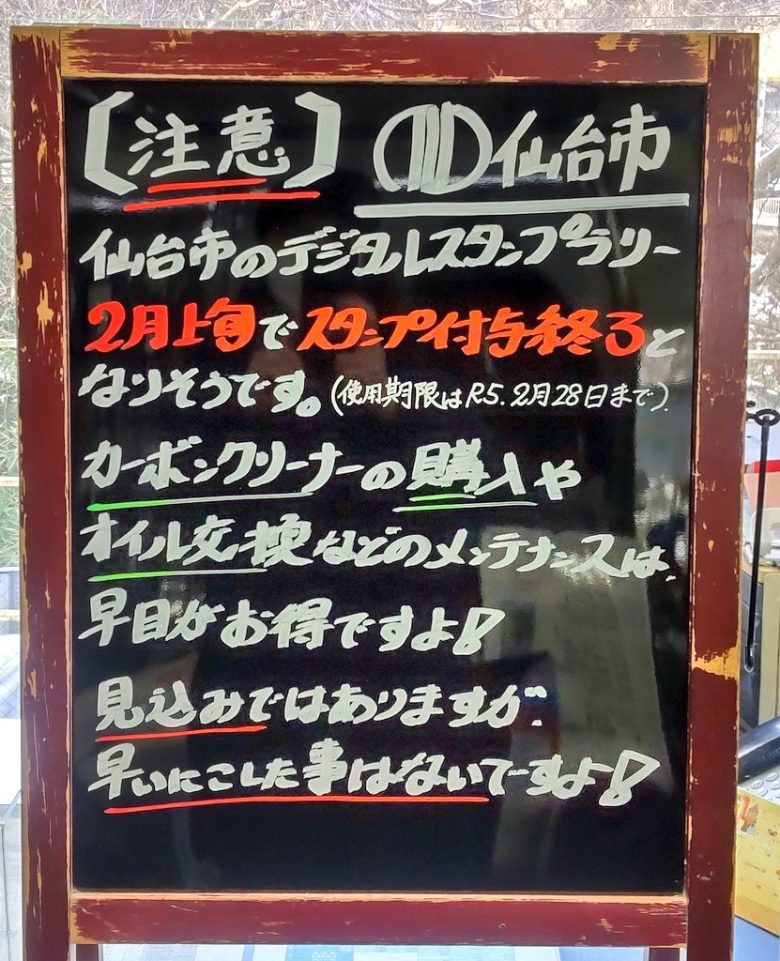 【注意】 仙台市
仙台市のデジタルスタンプラリー
2月上旬でスタンプ付与終了と
なりそうです。(使用期限はR5.2月28日まで).
カーボンクリーナーの購入や
オイル交換などのメンテナンスは、
早目がお得ですよ!
見込みではありますが、
早いにこした事はないでーすよ!